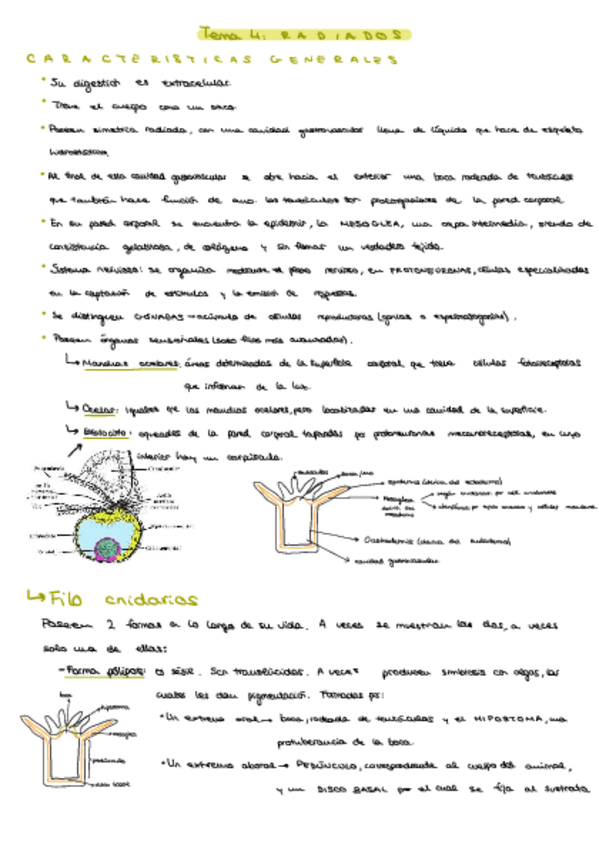 Tema 4: RADIADOS
CARACTERISTICAS GENERALES
• Su digestión es extracelular.
• Tiene el cuerpo como un saco.
• Poseen simetría radiada, con una cavidad gastrovascular llena de líquido que hace de esqueleto
hidrostático.
• Al final de esta cavidad gastrovascular se abre hacia el exterior una boca rodeada de tentáculos
que también hace función de ano. Los tentáculos son prolongaciones de la pared corporal.
• En su pared corporal se encuentra la epidermis, la MESOGLEA, una capa intermedia, siendo de
consistencia gelatinosa, de colágeno y sin formar un verdadero tejido.
• Sistema nervioso: se organiza mediante el plexo nervioso, en PROTONEURONAS, células especializadas
en la captación de estímulos y la emisión de respuestas.
• Se distinguen GÓNADAS → acúmulo de células reproductoras (gonias o espermatogonias).
• Poseen órganos sensoriales (solo filos más avanzados).
↳ Manchas ocelares: áreas determinadas de la superficie corporal que tiene células fotorreceptoras
que informan de la luz.
↳ Ocelos: iguales que las manchas ocelares, pero localizadas en una cavidad de la superficie.
↳ Estatocisto: oquedades de la pared corporal tapizadas por protoneuronas mecanorreceptoras, en cuyo
interior hay un
tentáculos
boca/ano
epidermis (deriva del ectodermo)
Mesoglea
Gastrodermis (deriva del endodermo)
cavidad gastrovascular
↳ Filo cnidarios
Poseen 2 formas a lo largo de su vida. A veces se muestran las dos, a veces
solo una de ellas:
- Forma pólipos: es sésil. Son translúcidos. A veces producen simbiosis con algas, las
cuales les dan pigmentación. Formadas por:
boca
hipostoma
mesoglea
pedúnculo
disco basal
• Un extremo oral → boca, rodeada de tentáculos y el HIPOSTOMA, una
protuberancia de la boca.
• Un extremo aboral → PEDÚNCULO, correspondiente al cuerpo del animal,
y un DISCO BASAL por el cual se fija al sustrato